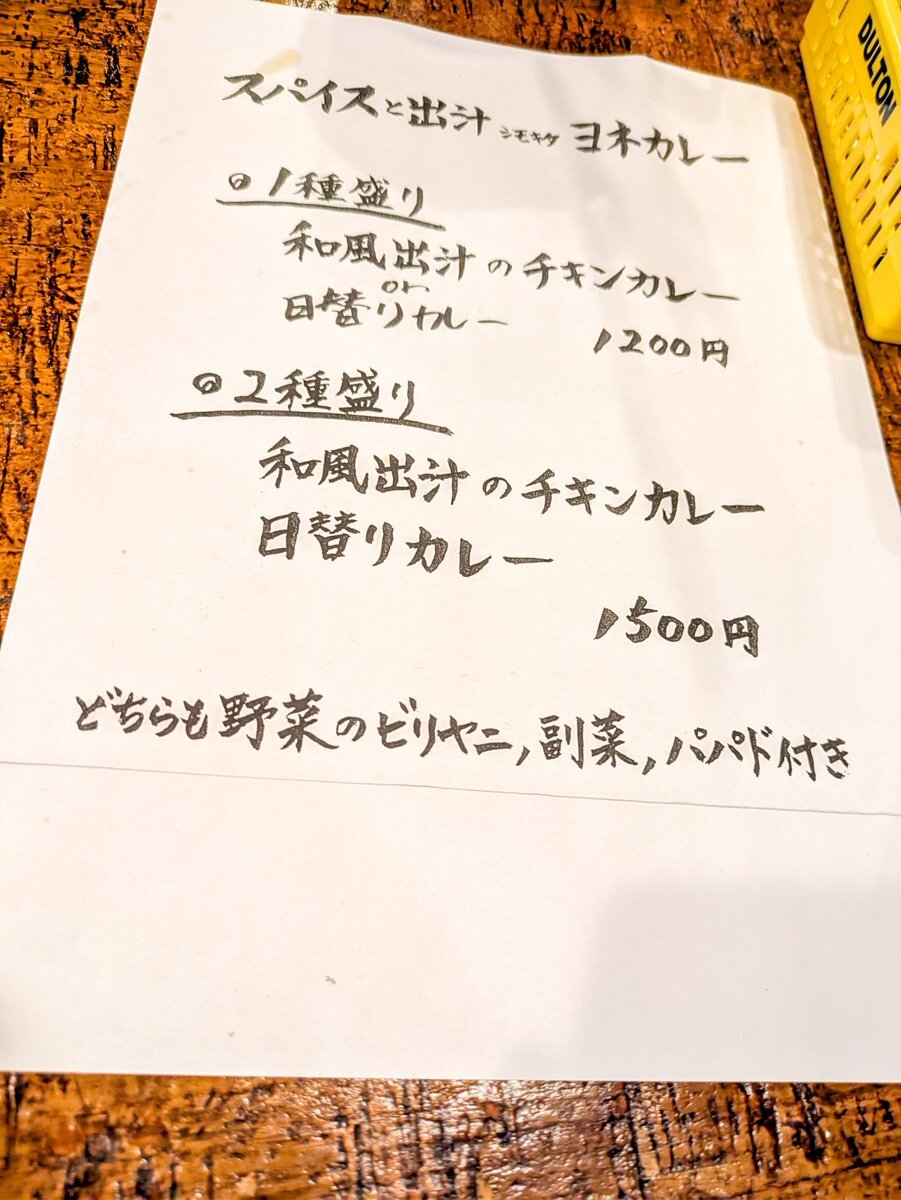 スパイスと出汁 シモキタ ヨネカレー
◎1種盛り
和風出汁のチキンカレー
or
日替りカレー 1200円
◎2種盛り
和風出汁のチキンカレー
日替りカレー
1500円
どちらも野菜のビリヤニ,副菜,パパド付き
DULTON